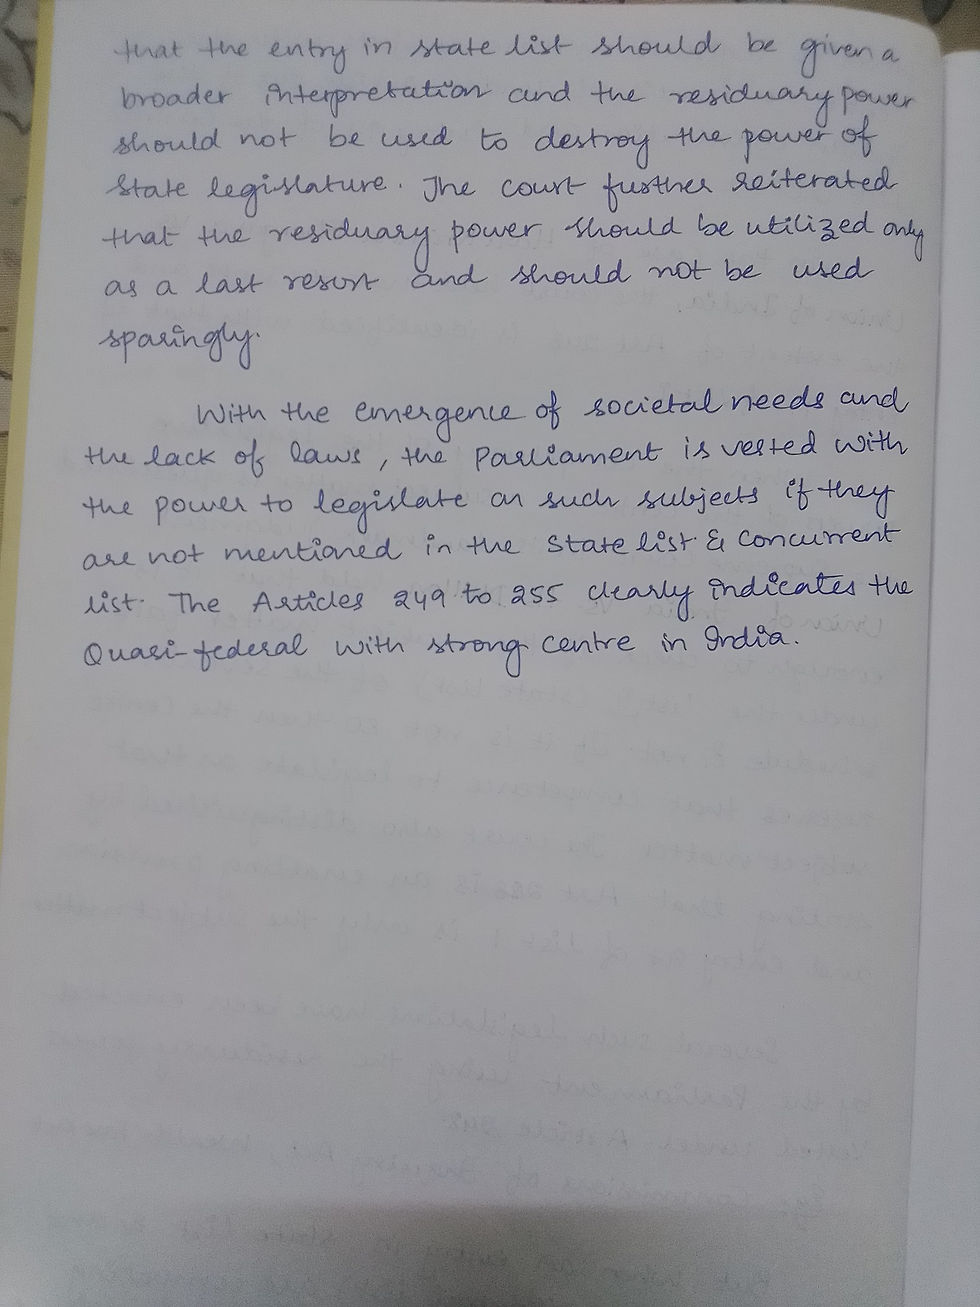 that the entry in state list should be given a
broader interpretation and the residuary power
should not be used to destroy the power of
State legislature. The court further reiterated
that the residuary power should be utilized only
as a last resort and should not be used
sparingly.
With the emergence of societal needs and
the lack of laws, the Parliament is vested with
the power to legislate on such subjects if they
are not mentioned in the State list & Concurrent
list. The Articles 249 to 255 clearly indicates the
Quasi-federal with strong centre in India.